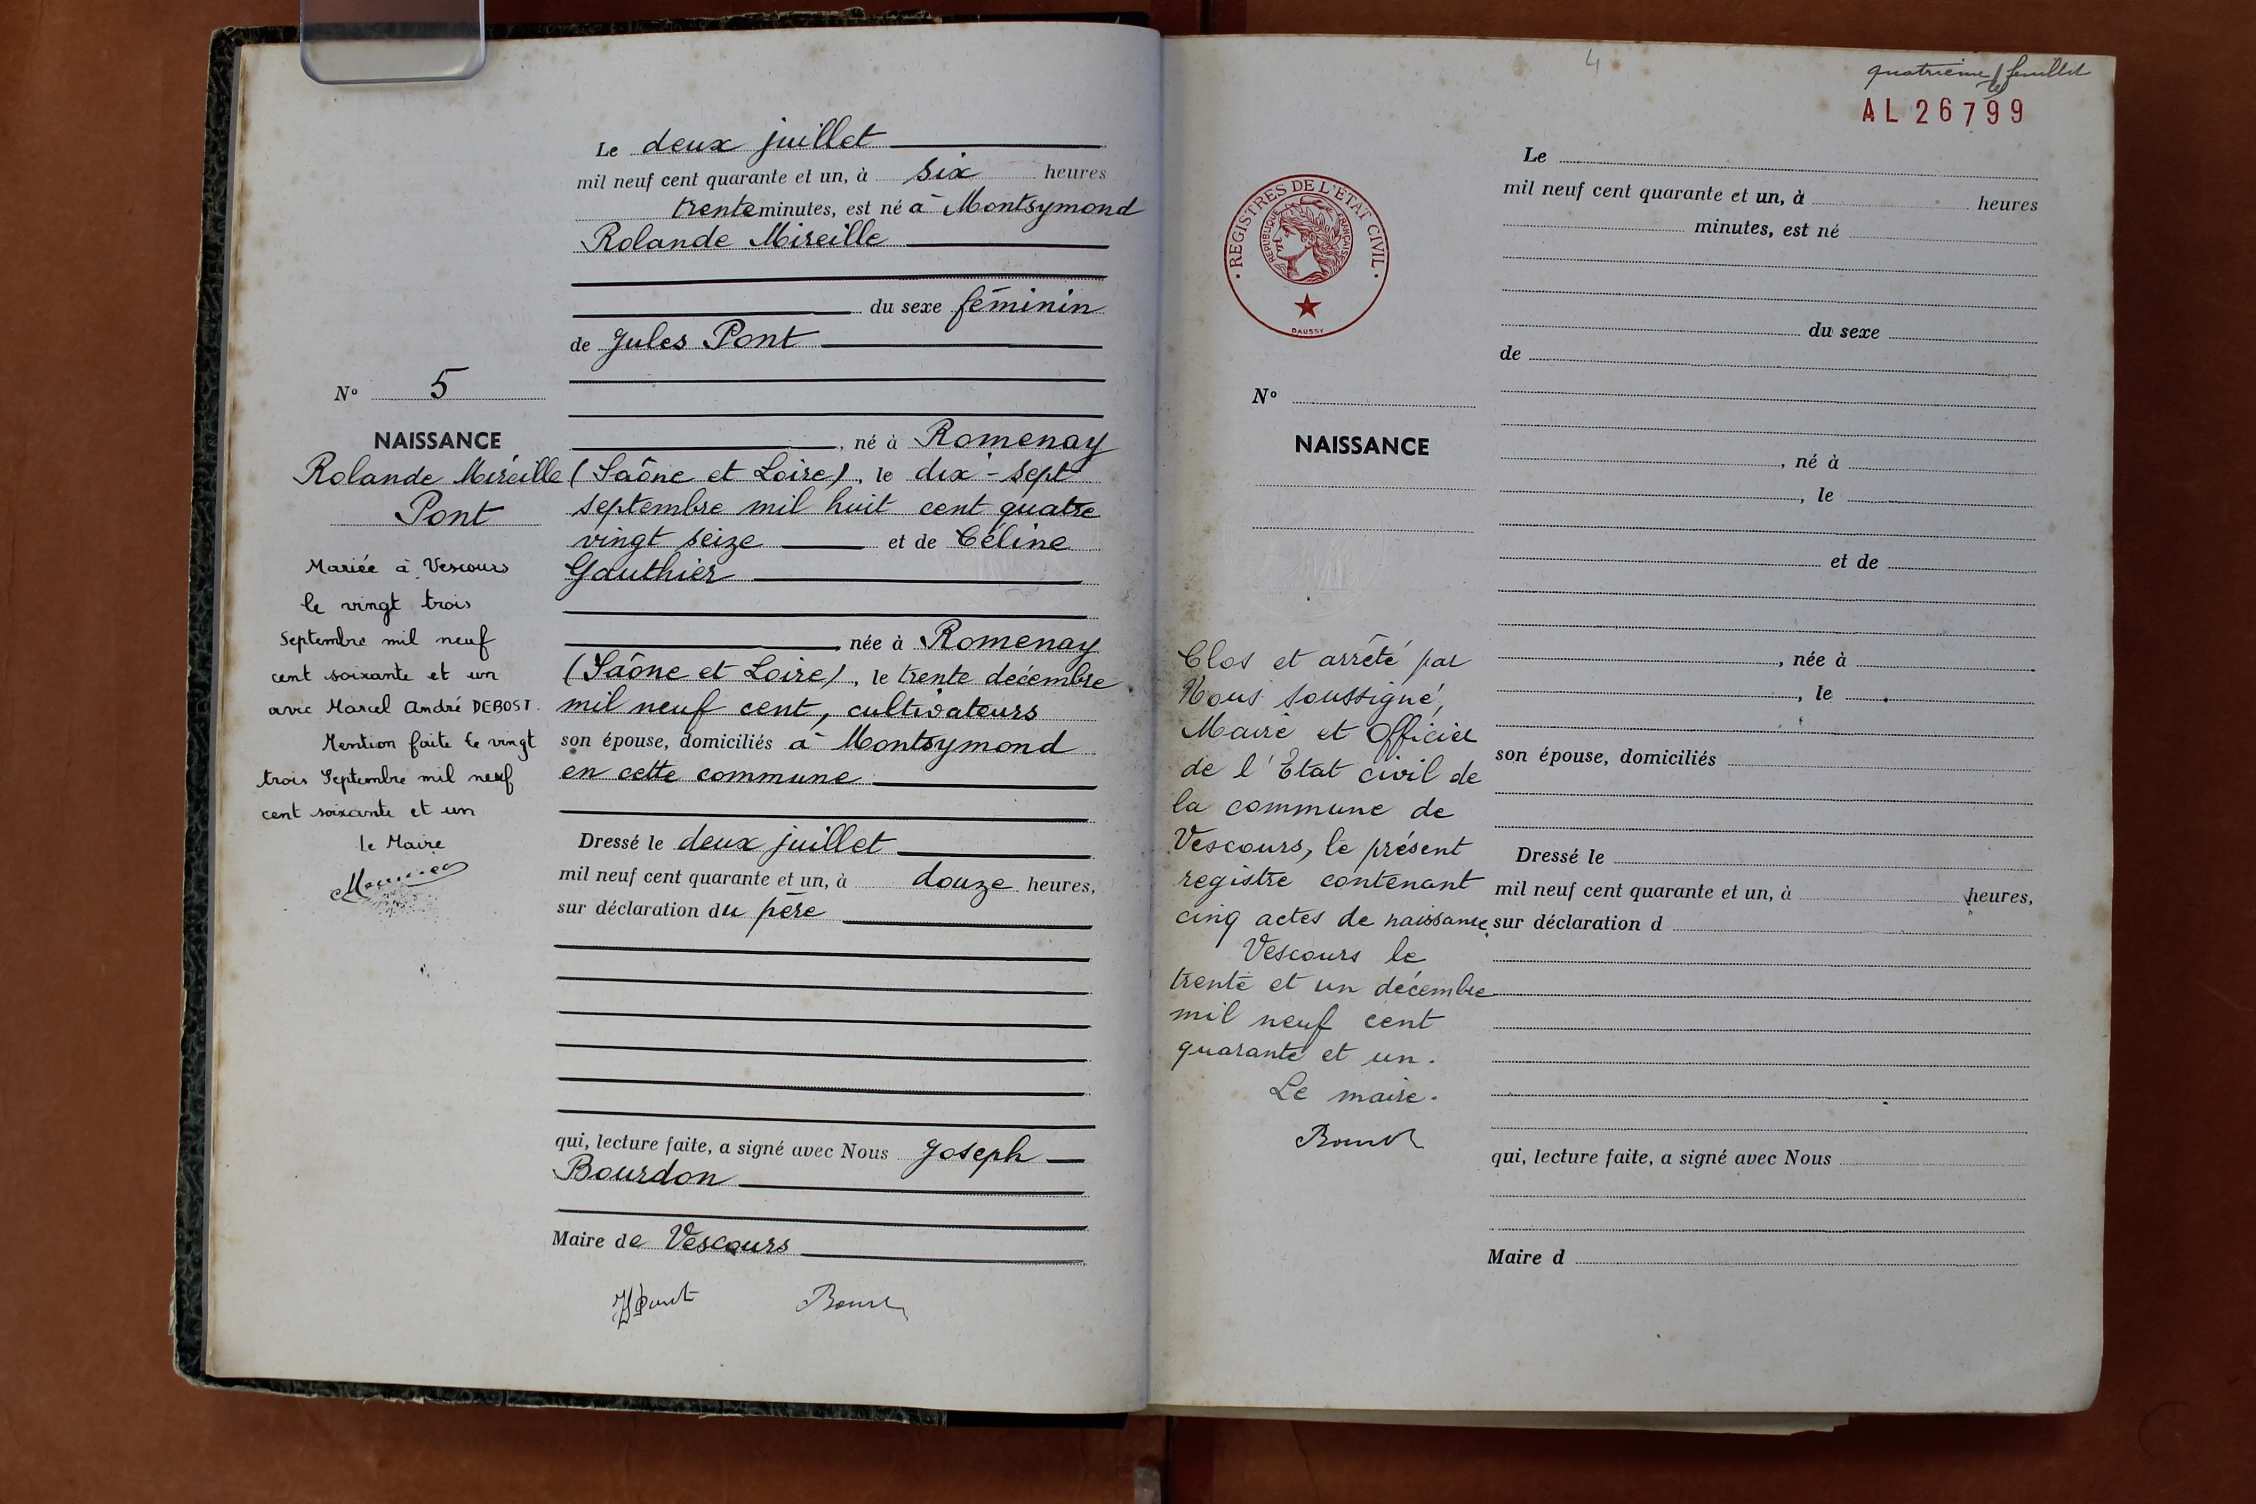 Le deux juillet
mil neuf cent quarante et un, à six heures
trente minutes, est né à Montsymond
Rolande Mireille
du sexe féminin
de Jules Pont
, né à Romenay
(Saône et Loire), le dix-sept
septembre mil huit cent quatre
vingt seize et de Céline
Gauthier
née à Romenay
(Saône et Loire), le trente décembre
mil neuf cent, cultivateurs
son épouse, domiciliés à Montsymond
en cette commune
Dressé le deux juillet
mil neuf cent quarante et un, à douze heures,
sur déclaration du père
qui, lecture faite, a signé avec Nous Joseph
Bourdon
Maire de Vescours
N° 5
NAISSANCE
Rolande Mireille
Pont
Mariée à Vescours
le vingt trois
Septembre mil neuf
cent soixante et un
avec Marcel André DEBOST.
Mention faite le vingt
trois Septembre mil neuf
cent soixante et un
le Maire
4
quatrième feuillet
AL 26799
REGISTRES DE L'ETAT CIVIL
REPUBLIQUE FRANÇAISE
DAUSSY
N°
NAISSANCE
Clos et arrêté par
Nous soussigné,
Maire et Officier
de l'Etat civil de
la commune de
Vescours, le présent
registre contenant
cinq actes de naissance.
Vescours le
trente et un décembre
mil neuf cent
quarante et un.
Le maire.
Le
mil neuf cent quarante et un, à heures
minutes, est né
du sexe
de
, né à
, le
et de
, née à
, le
son épouse, domiciliés
Dressé le
mil neuf cent quarante et un, à heures,
sur déclaration d
qui, lecture faite, a signé avec Nous
Maire d